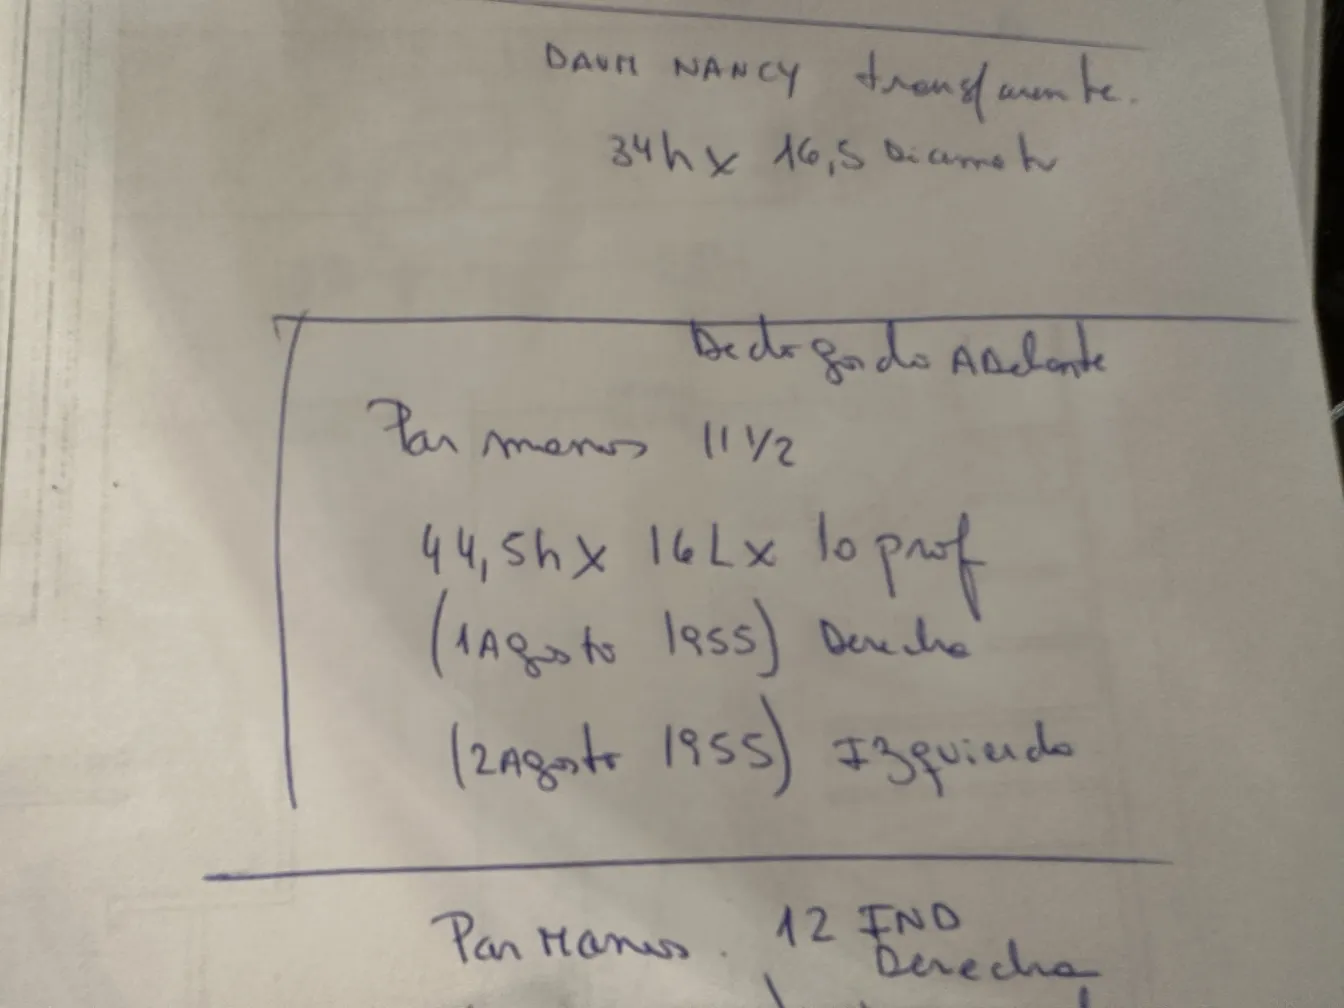 DAUM NANCY transparente.
34h x 16,5 Diametr
Dedo gordo ADelante
Par manos 11 1/2
44,5h x 16L x 10 prof
(1 Agosto 1955) Derecha
(2 Agosto 1955) Izquierda
Par Manos. 12 IND
Derecha